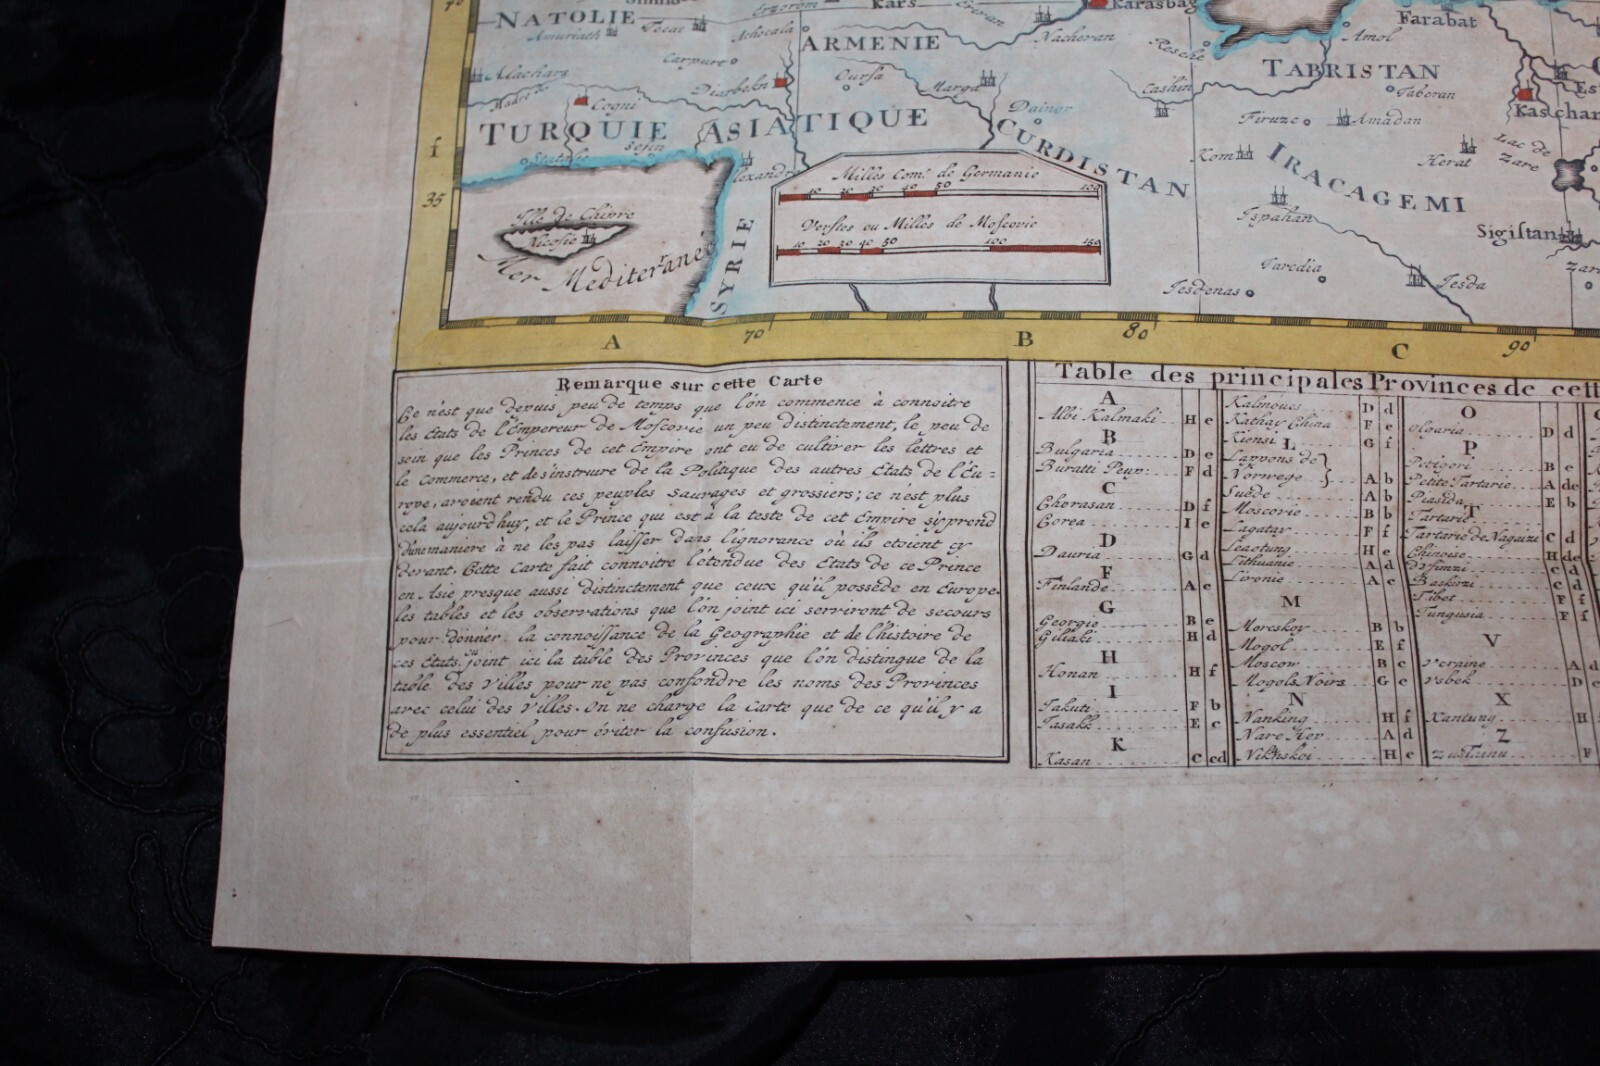 NATOLIE
Erzerom
Kars
Erivan
Karasbag
Farabat
Amuriath
Tocat
Achocala
ARMENIE
Nacheran
Resche
Amol
Carpurt
TABRISTAN
Alachars
Diarbekn
Oursa
Marga
Cashin
Taberan
Cogni
Dainor
Kaschan
TURQUIE ASIATIQUE
CURDISTAN
Firuze
Amadan
f
Satalie
Kom
IRACAGEMI
Herat
Lac de
Zare
Alexandr
Milles Com. de Germanie
10 20 30 40 50 100
35
Isle de Chipre
Nicosie
Ispahan
Mer Mediteranée
SYRIE
Verstes ou Milles de Moscovie
10 20 30 40 50 100 150
Sigistan
Taredia
Jesdenas
Jesda
70
80
90
A
B
C
Remarque sur cette Carte
Ce n'est que depuis peu de temps que l'on commence à connoitre
les Etats de l'Empereur de Moscovie un peu distinctement, le peu de
soin que les Princes de cet Empire ont eu de cultiver les lettres et
le Commerce, et de s'instruire de la Politique des autres Etats de l'Eu-
rope, avoient rendu ces peuples Sauvages et grossiers; ce n'est plus
cela aujourd'huy, et le Prince qui est à la teste de cet Empire s'y prend
d'une maniere à ne les pas laisser dans l'ignorance où ils etoient cy
devant. Cette Carte fait connoitre l'étendue des Etats de ce Prince
en Asie presque aussi distinctement que ceux qu'il possede en Europe.
les tables et les observations que l'on joint ici serviront de secours
pour donner la connoissance de la Geographie et de l'histoire de
ces Etats. on joint ici la table des Provinces que l'on distingue de la
table des Villes pour ne pas confondre les noms des Provinces
avec celui des Villes. On ne charge la Carte que de ce qu'il y a
de plus essentiel pour éviter la confusion.
Table des principales Provinces de cett
A
Albi Kalmaki H e
B
Bulgaria D e
Buratti Peup: F d
C
Chorasan D f
Corea I e
D
Dauria G d
F
Finlande A c
G
Georgie B e
Giliaki H d
H
Honan H f
I
Jakuti F b
Jasakk E c
K
Kasan C cd
Kalmoucs D d
Kathay China F e
Kionsi G f
L
Lappons de
Norwege A b
Suede A b
Moscovie B b
Lagatay F f
Leaotung H e
Lithuanie A d
Livonie A c
M
Moreskoy B b
Mogol E f
Moscow B c
Mogols Noirs G e
N
Nanking H f
Nare Hev A d
Nikhskoi H e
O
Olgaria D d
P
Petigori B e
Petite Tartarie A de
Piasida E b
T
Tartarie
Tartarie de Nagaia C d
Chinoise H de
Baskirzi C d
Tibet F f
Tungusia F f
V
Vcraine A d
Vsbek D e
X
Xantung H
Z
Zustainu F